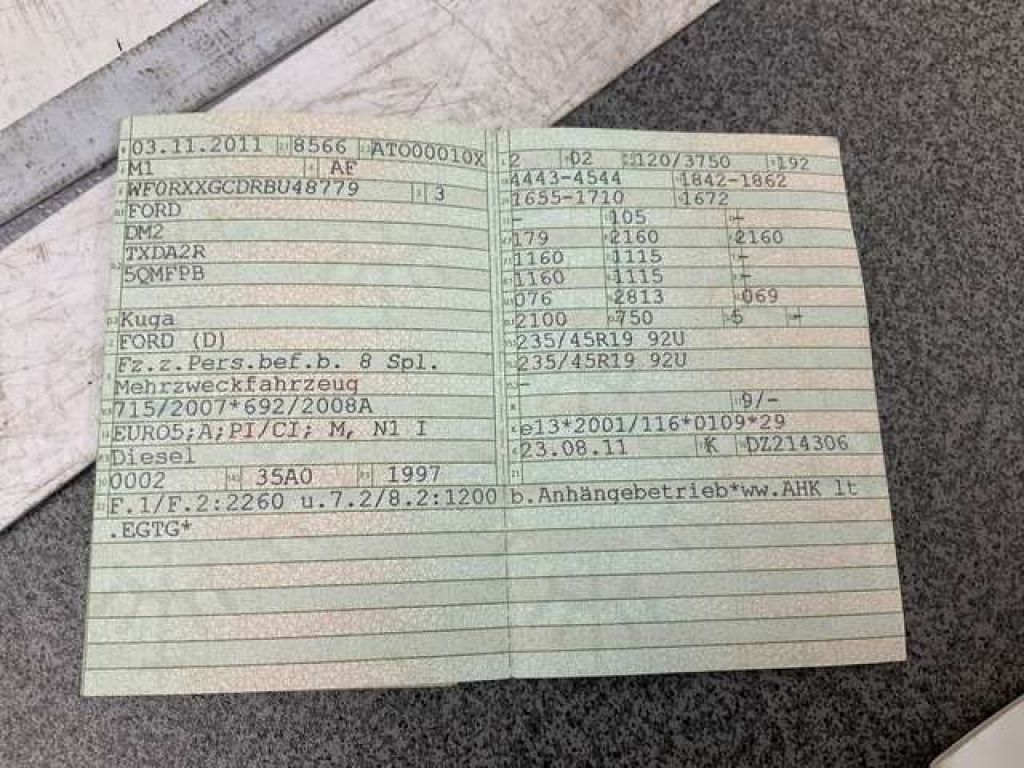 03.11.2011 8566 ATO00010X
M1 AF
WF0RXXGCDRBU48779 3
FORD
DM2
TXDA2R
5QMFPB
Kuga
FORD (D)
Fz.z.Pers.bef.b. 8 Spl.
Mehrzweckfahrzeug
715/2007*692/2008A
EURO5;A;PI/CI; M, N1 I
Diesel
0002 35A0 1997
2 02 120/3750 192
4443-4544 1842-1862
1655-1710 1672
- 105 -
179 2160 2160
1160 1115 -
1160 1115 -
076 2813 069
2100 750 5 -
235/45R19 92U
235/45R19 92U
-
9/-
e13*2001/116*0109*29
23.08.11 K DZ214306
F.1/F.2:2260 u.7.2/8.2:1200 b.Anhängebetrieb*ww.AHK lt
.EGTG*